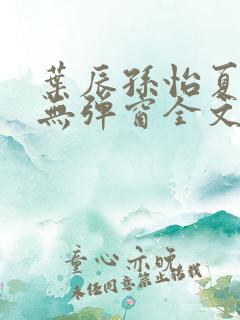 葉辰孫怡夏
無彈窗全文
童心亦晚
未經同意禁止轉載